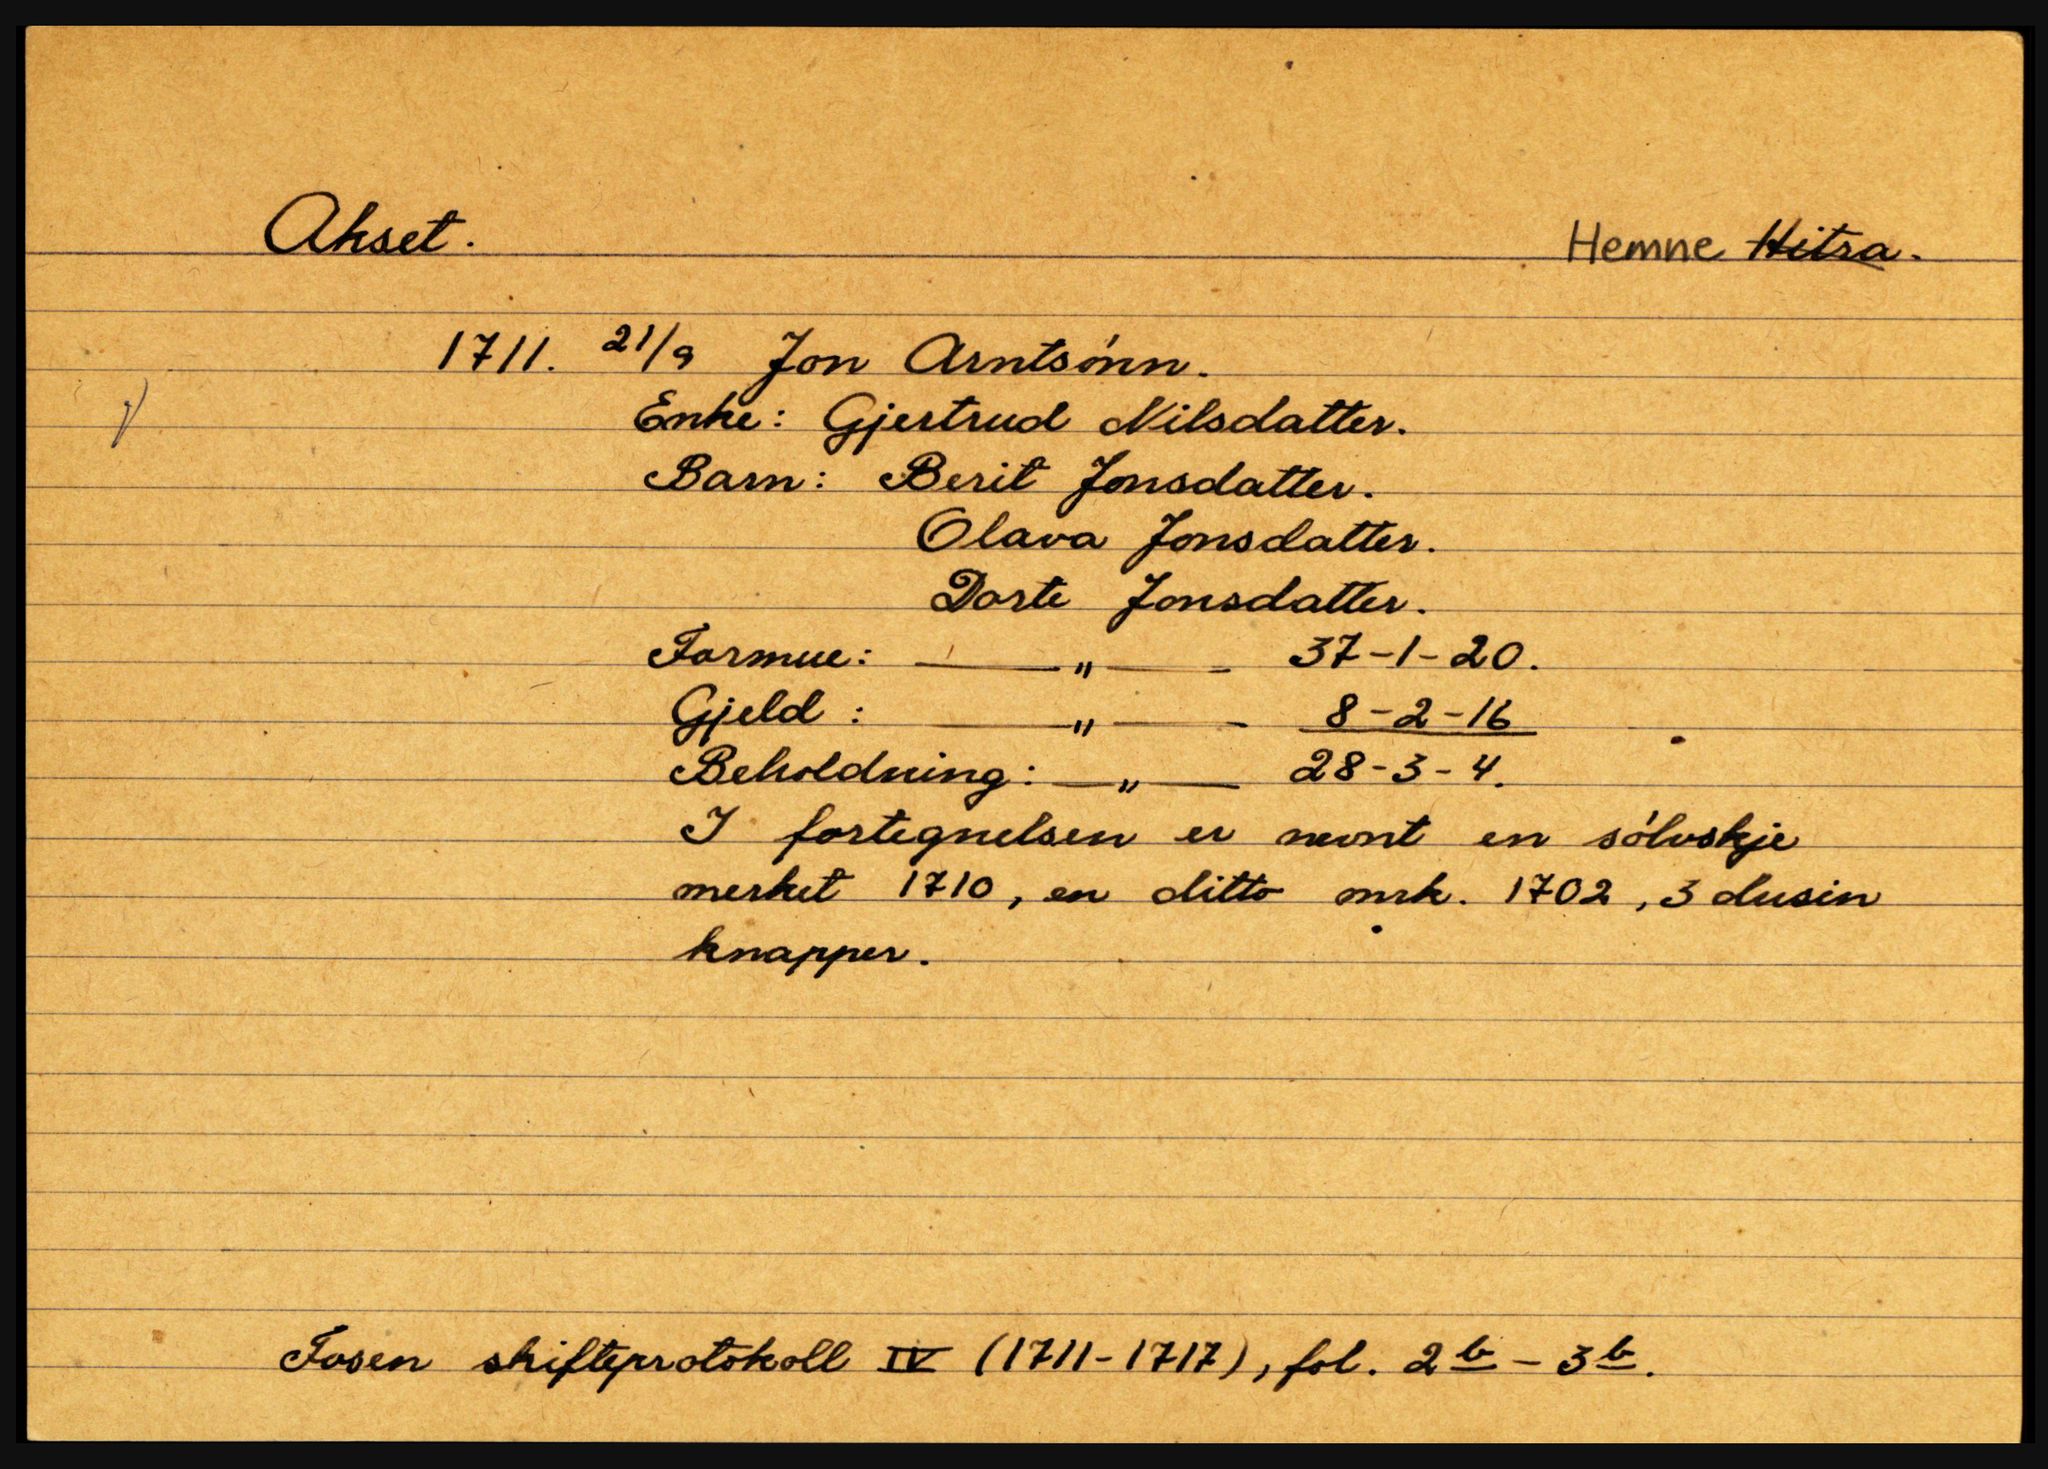 Akset. Hemne Hitra.
1711. 21/9 Jon Arntsónn.
Enke: Gjertrud Nilsdatter.
Barn: Berit Jonsdatter.
Olava Jonsdatter.
Dorte Jonsdatter.
Formue: — „ — 37-1-20.
Gjeld : — „ — 8-2-16
Beholdning: — „ — 28-3-4.
I fortegnelsen er nevnt en sólvskje
merket 1710, en ditto mrk. 1702, 3 dusin
knapper.
Fosen skifteprotokoll IV (1711-1717), fol. 2b - 3b.